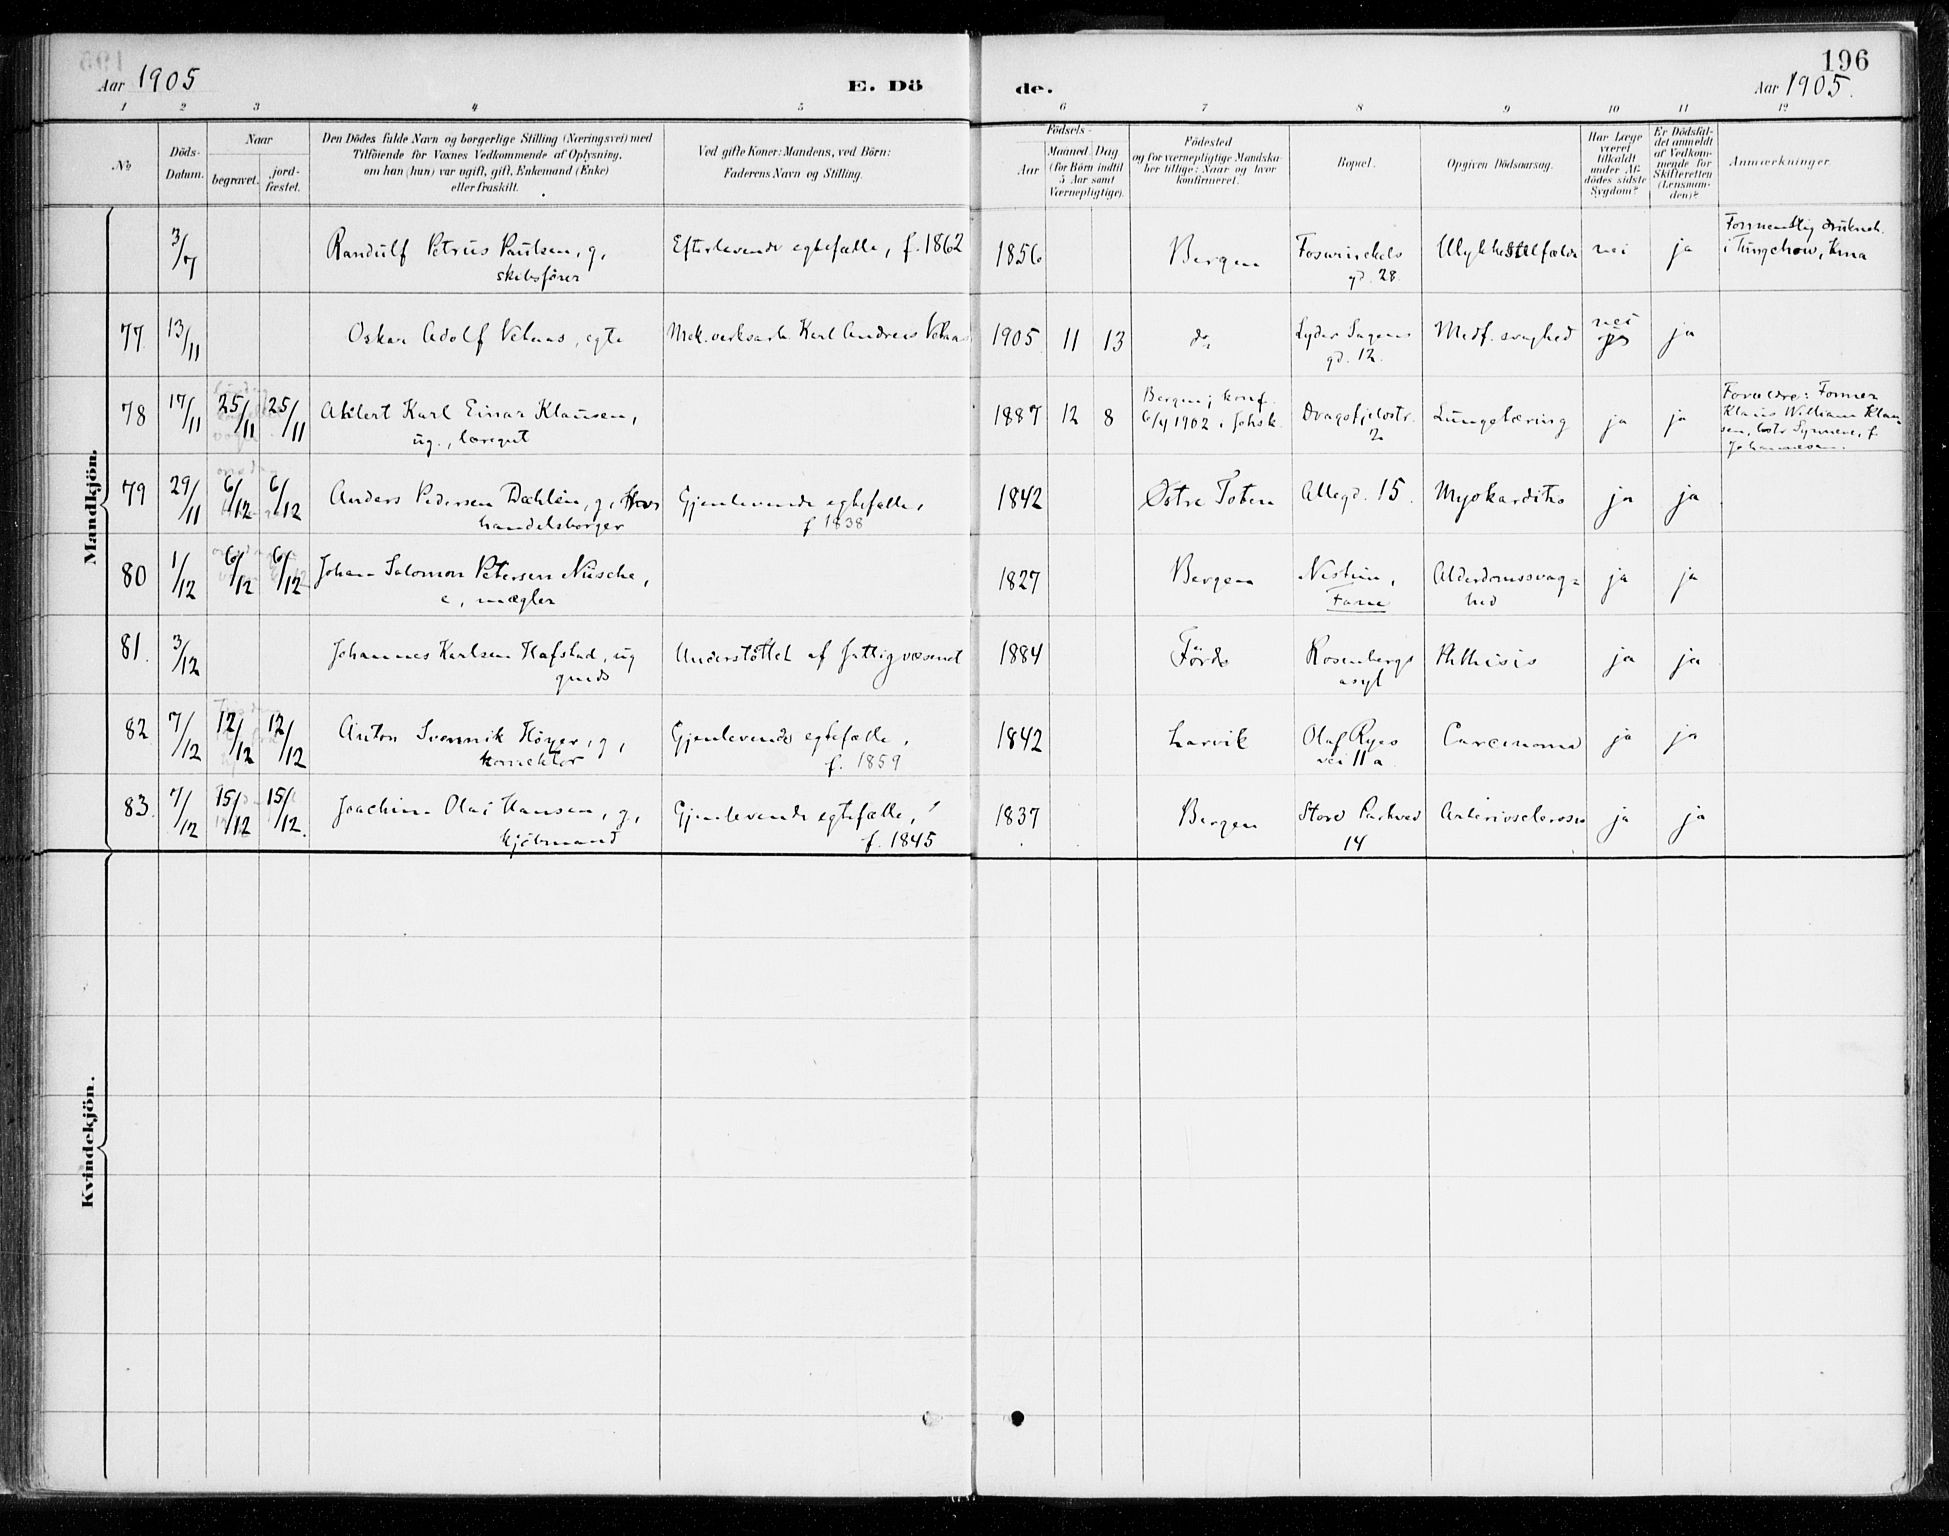 196
Aar 1905
E. Dö
de.
Aar 1905.
1 2 3 4 5 6 7 8 9 10 11 12
No
Döds-
Datum.
Naar
begravet.
jord-
fæstet.
Den Dödes fulde Navn og borgerlige Stilling (Næringsvei) med
Tilföiende for Voxnes Vedkommende af Oplysning,
om han (hun) var ugift, gift, Enkemand (Enke)
eller fraskilt.
Ved gifte Koner: Mandens, ved Börn:
Faderens Navn og Stilling.
Födsels-
Aar
Maaned
Dag
(for Börn indtil
5 Aar samt
Værnepligtige).
Födested
og for værnepligtige Mandska-
ber tillige: Naar og hvor
konfirmeret.
Bopæl.
Opgiven Dödsaarsag.
Har Læge
været
tilkaldt
under Af-
dödes sidste
Sygdom?
Er Dödsfal-
det anmeldt
af Vedkom-
mende for
Skifteretten
(Lensman-
den)?
Anmærkninger.
Mandkjön.
3/7 Randulf Petrus Paulsen, g, Efterlevende egtefælle, f. 1862 1856 Bergen Foswinckels Ulykkestilfælde nei ja
skibsfører
gd. 28.
i Tungchow, Kina
77 13/11 Oskar Adolf Velaas, egte Mek. verksarb. Karl Andreas Velaas 1905 11 13 do Lyder Sagens Medf. svaghed nei ja
gd. 12.
78 17/11 25/11 25/11 Ahlert Karl Einar Klausen, 1887 12 8 Bergen; konf. Dragefjeldstr. Lungetæring ja ja
ug., læregut
6/4 1902 i Johsk.
2
Forældre: Former
Klaus William Klau-
sen, Synneve, f.
Johannesen.
79 29/11 6/12 6/12 Anders Pedersen Dæhlen, g, Gjenlevende egtefælle, 1842 Østre Toten Allegd. 15. Myokarditis ja ja
handelsborger
f 1838
80 1/12 6/12 6/12 Johan Salomon Petersen Nüsche, 1827 Bergen Nestun, Alderdomssvag= ja ja
e, mægler
Fane
hed
81. 3/12 Johannes Karlsen Hafstad, ug Understöttet af fattigvæsenet 1884 Förde Rosenbergs Phthisis ja ja
asyl
82 7/12 12/12 12/12 Anton Svennik Höyer, g, Gjenlevende egtefælle, 1842 Larvik Olaf Ryes Carcinoma ja ja
korrektør
f. 1859
vei 11 a
83. 7/12 15/12 15/12. Joachim Olai Hansen, g, Gjenlevende egtefælle, 1837 Bergen Store Parkvei Arteriosclerosis ja ja
kjöbmand
f. 1845
14
Kvindekjön.